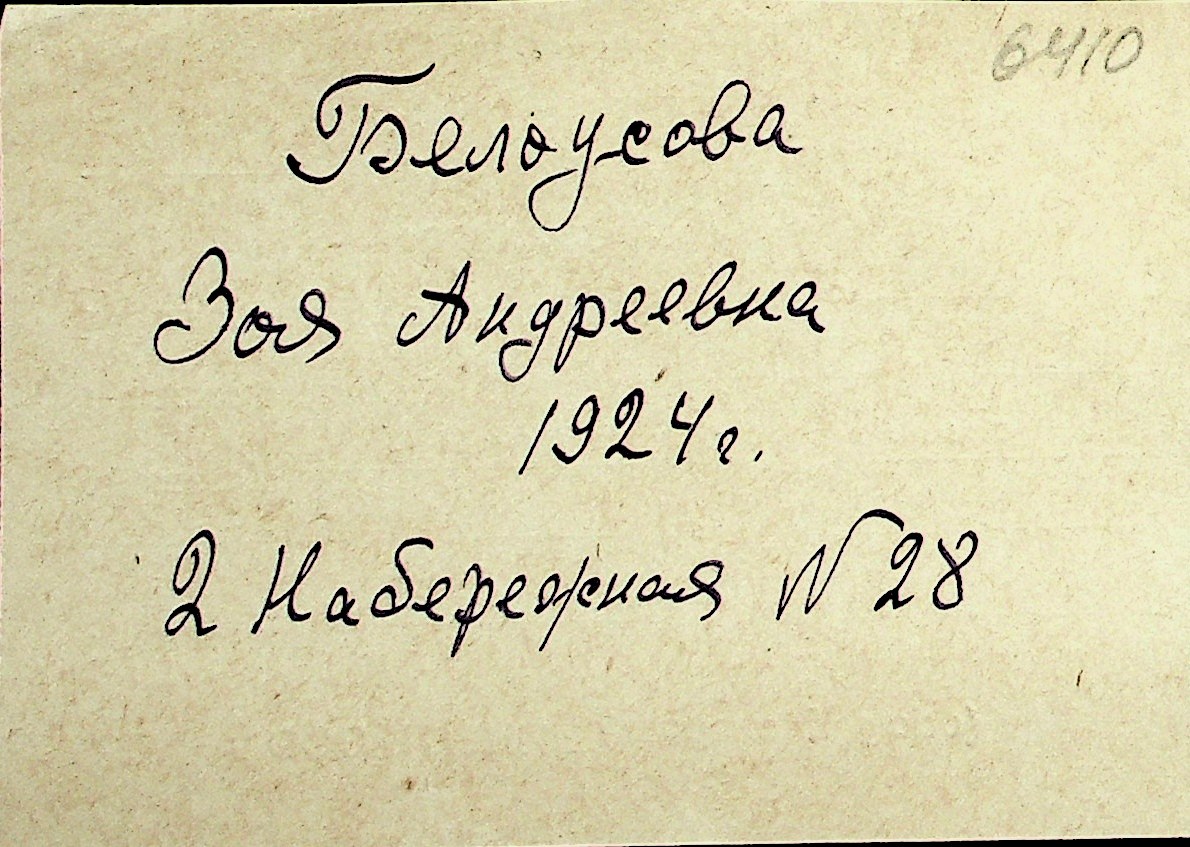 6410
Белоусова
Зоя Андреевна
1924 г.
2 Набережная N 28